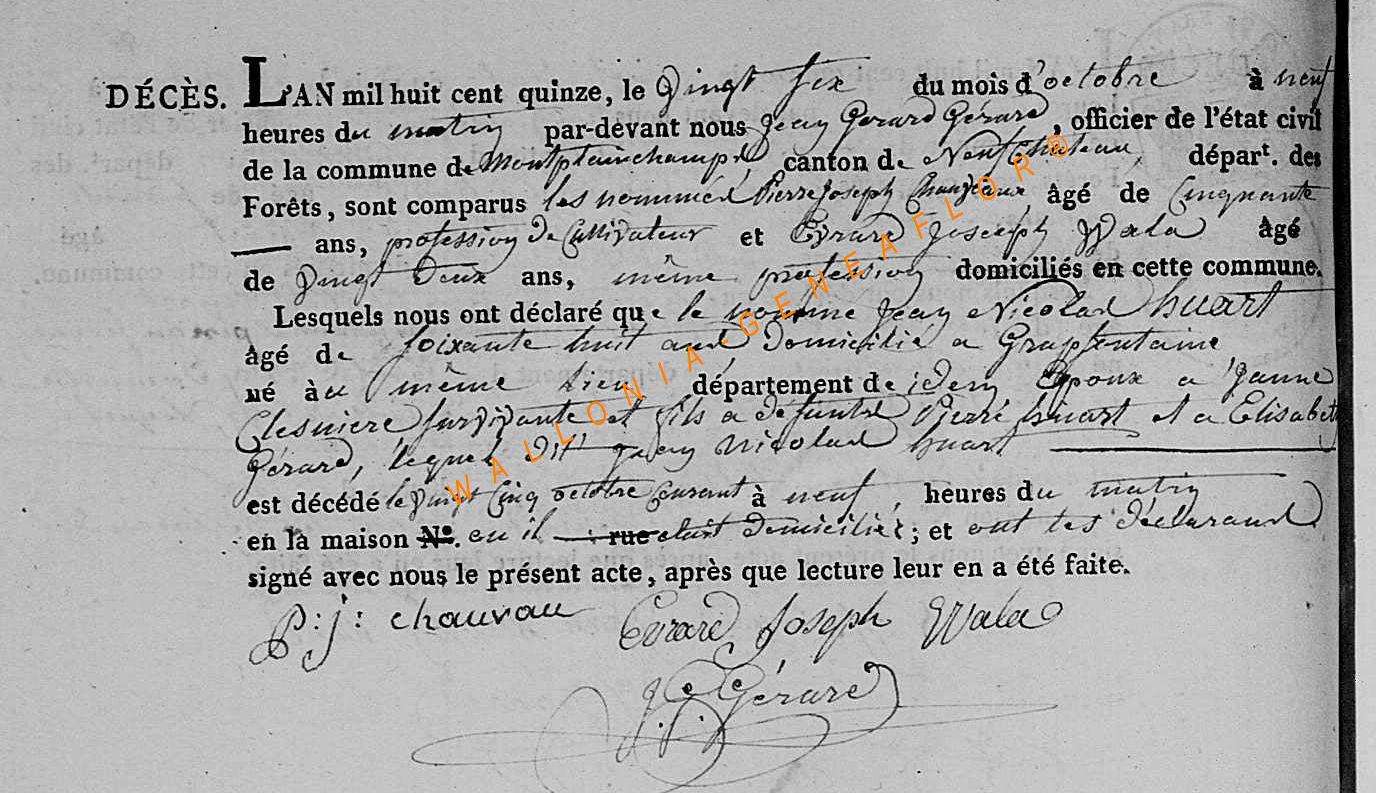 DÉCÈS. L'AN mil huit cent quinze, le vingt six du mois d'octobre à neuf
heures du matin par-devant nous Jean Gerard Gérard, officier de l'état civil
de la commune de Montplainchamps, canton de Neufchateau, départ. des
Forêts, sont comparus les nommés Pierre Joseph Chauveaux âgé de Cinquante
ans, profession de Cultivateur et Evrard Joseph Wala âgé
de vingt deux ans, même profession domiciliés en cette commune.
Lesquels nous ont déclaré que le nommé Jean Nicolas huart
âgé de soixante huit ans domicilié a Grapfontaine
né à au même Lieu département de idem Epoux a Janne
survivante et fils a defunts Pierre huart et a Elisabet
Gérard, lequel dit Jean Nicolas huart
est décédé le vingt Cinq octobre Courant à neuf heures du matin
en la maison N°. ou il rue etait domicilié ; et ont les déclarans
signé avec nous le présent acte, après que lecture leur en a été faite.
P: j: chauvau Evrard Joseph Wala
J G Gérard
WALLONIA-GENEAFLOR®